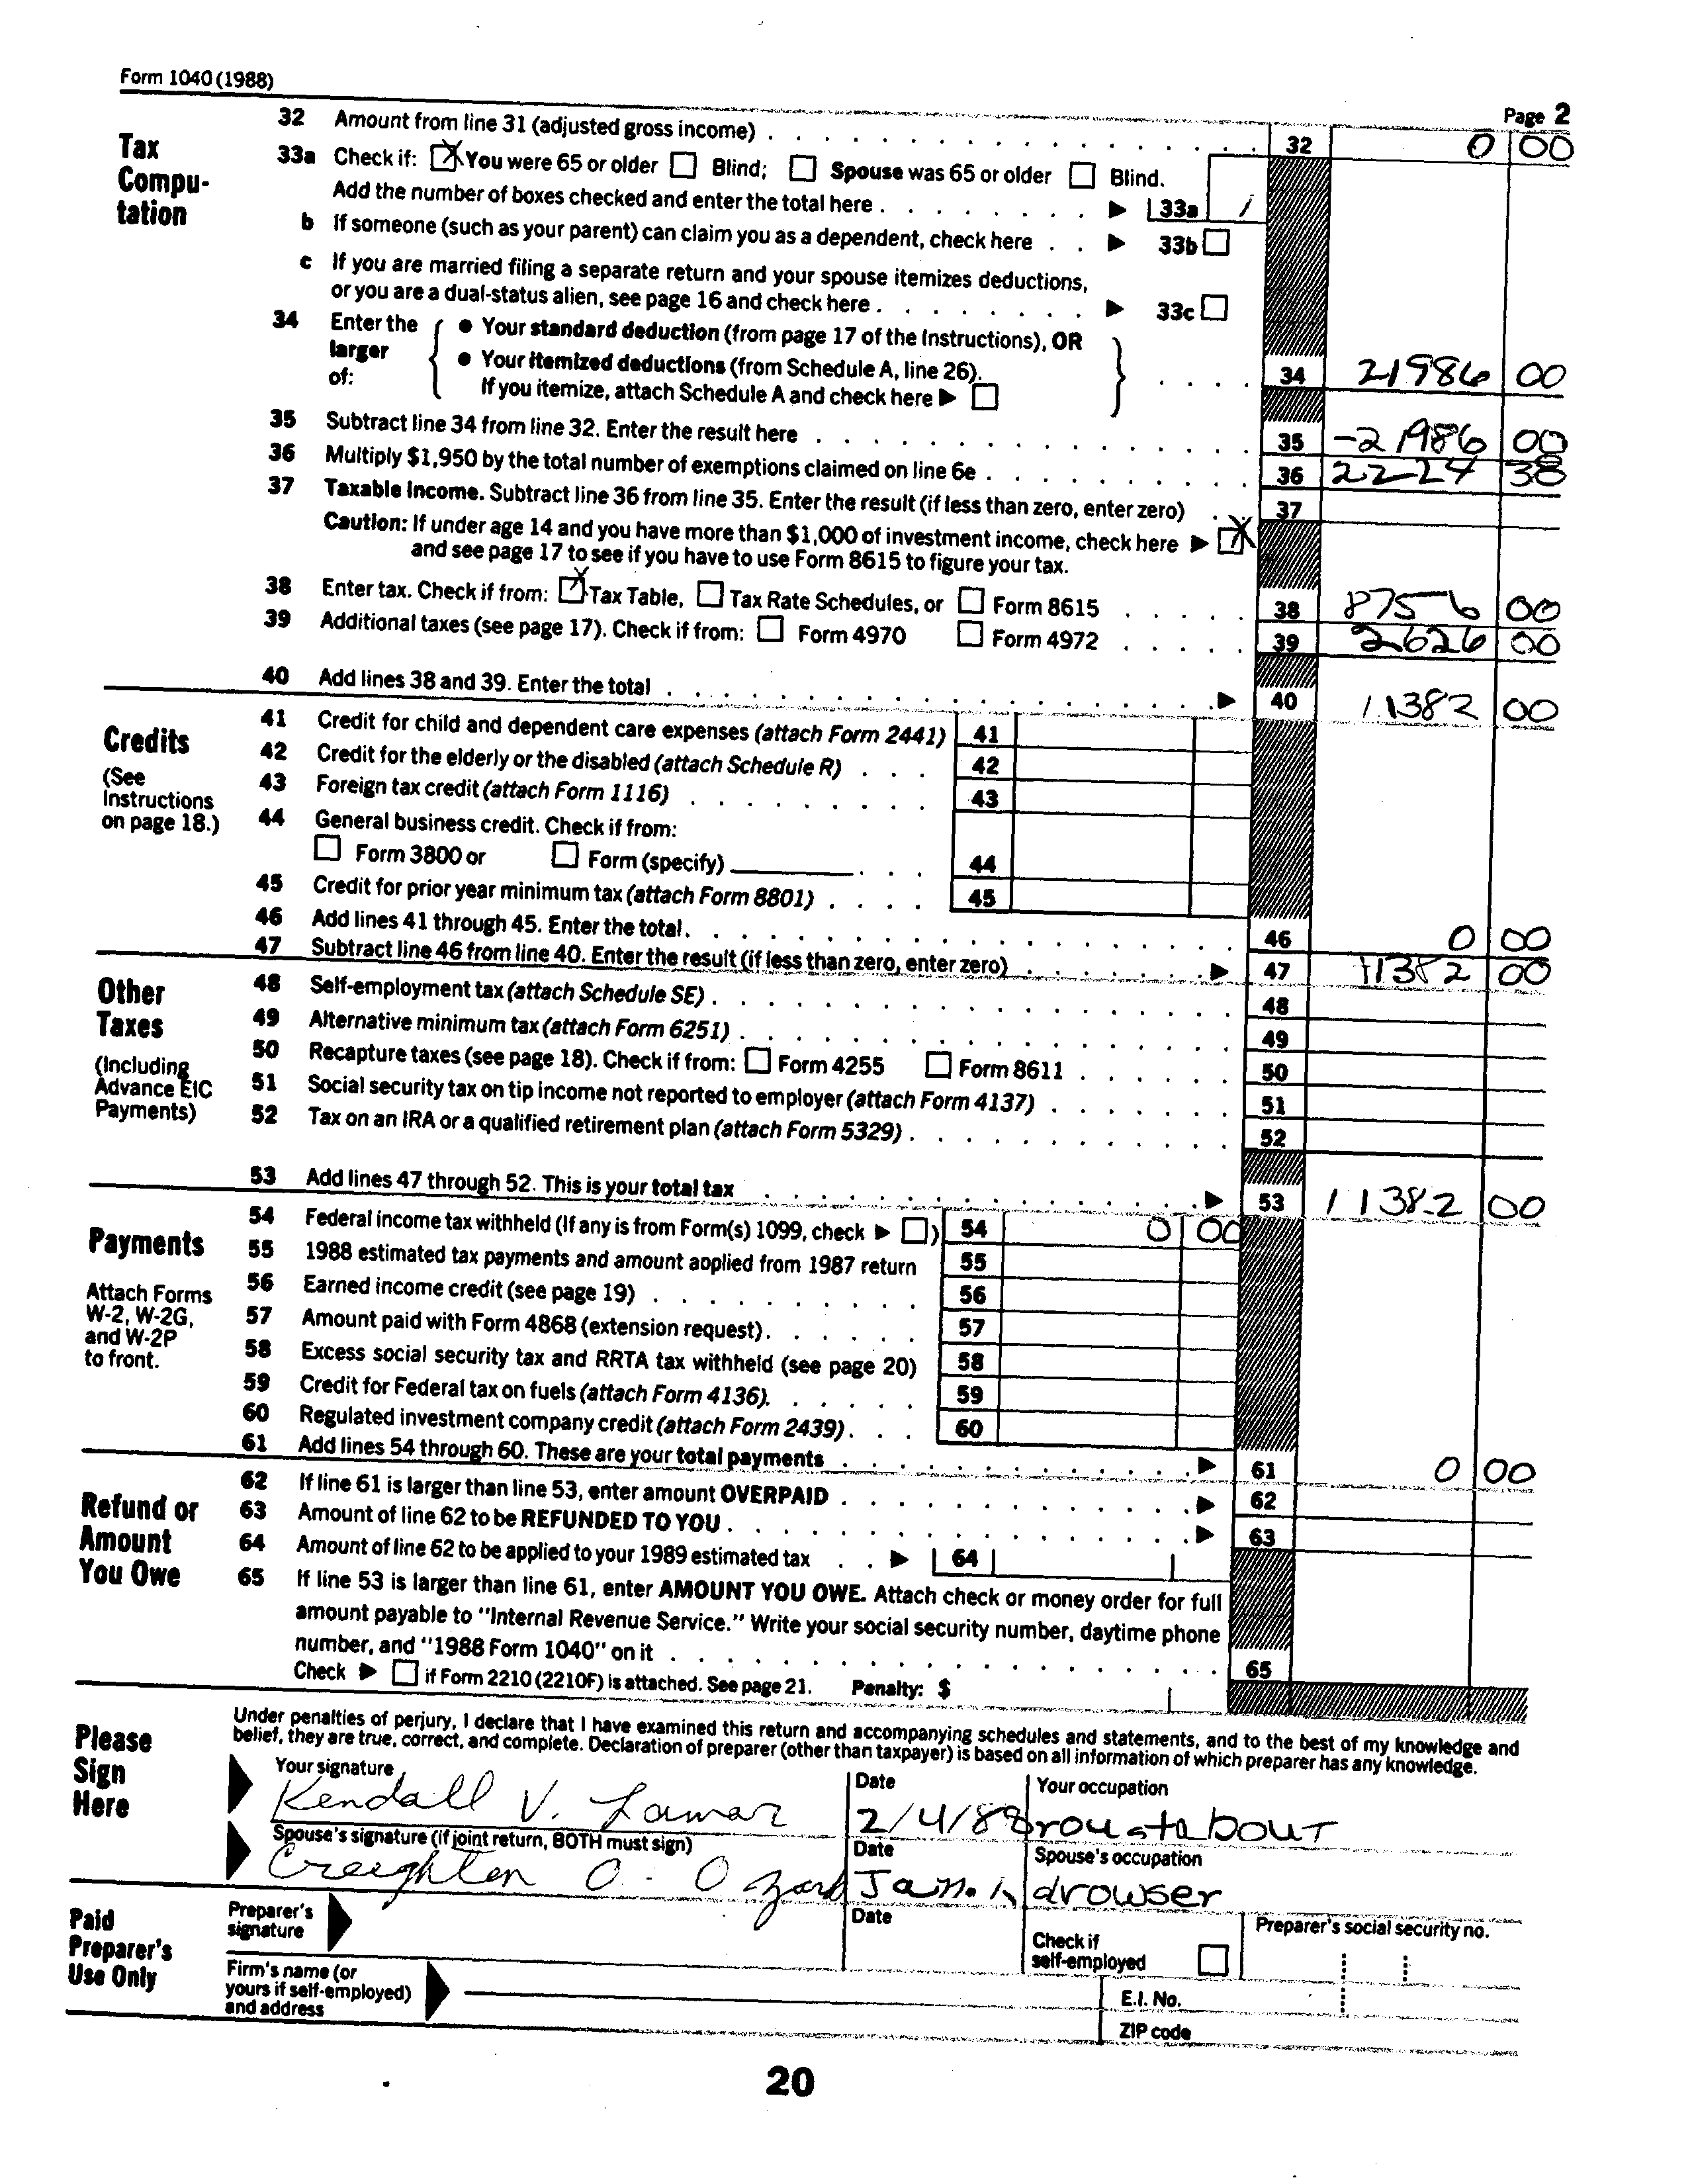 Form 1040 (1988)
Page 2
Tax Computation
32 Amount from line 31 (adjusted gross income) 32 0 00
33a Check if: X You were 65 or older Blind; Spouse was 65 or older Blind.
Add the number of boxes checked and enter the total here 33a 1
b If someone (such as your parent) can claim you as a dependent, check here 33b
c If you are married filing a separate return and your spouse itemizes deductions,
or you are a dual-status alien, see page 16 and check here 33c
34 Enter the larger of: { • Your standard deduction (from page 17 of the Instructions), OR
• Your itemized deductions (from Schedule A, line 26).
If you itemize, attach Schedule A and check here } 34 21986 00
35 Subtract line 34 from line 32. Enter the result here 35 -21986 00
36 Multiply $1,950 by the total number of exemptions claimed on line 6e 36 22224 38
37 Taxable Income. Subtract line 36 from line 35. Enter the result (if less than zero, enter zero) 37
Caution: If under age 14 and you have more than $1,000 of investment income, check here X
and see page 17 to see if you have to use Form 8615 to figure your tax.
38 Enter tax. Check if from: X Tax Table, Tax Rate Schedules, or Form 8615 38 8756 00
39 Additional taxes (see page 17). Check if from: Form 4970 Form 4972 39 2626 00
40 Add lines 38 and 39. Enter the total 40 11382 00
Credits
(See Instructions on page 18.)
41 Credit for child and dependent care expenses (attach Form 2441) 41
42 Credit for the elderly or the disabled (attach Schedule R) 42
43 Foreign tax credit (attach Form 1116) 43
44 General business credit. Check if from:
Form 3800 or Form (specify) 44
45 Credit for prior year minimum tax (attach Form 8801) 45
46 Add lines 41 through 45. Enter the total 46 0 00
47 Subtract line 46 from line 40. Enter the result (if less than zero, enter zero) 47 11382 00
Other Taxes
(Including Advance EIC Payments)
48 Self-employment tax (attach Schedule SE) 48
49 Alternative minimum tax (attach Form 6251) 49
50 Recapture taxes (see page 18). Check if from: Form 4255 Form 8611 50
51 Social security tax on tip income not reported to employer (attach Form 4137) 51
52 Tax on an IRA or a qualified retirement plan (attach Form 5329) 52
53 Add lines 47 through 52. This is your total tax 53 11382 00
Payments
Attach Forms W-2, W-2G, and W-2P to front.
54 Federal income tax withheld (If any is from Form(s) 1099, check ) 54 0 00
55 1988 estimated tax payments and amount applied from 1987 return 55
56 Earned income credit (see page 19) 56
57 Amount paid with Form 4868 (extension request) 57
58 Excess social security tax and RRTA tax withheld (see page 20) 58
59 Credit for Federal tax on fuels (attach Form 4136) 59
60 Regulated investment company credit (attach Form 2439) 60
61 Add lines 54 through 60. These are your total payments 61 0 00
Refund or Amount You Owe
62 If line 61 is larger than line 53, enter amount OVERPAID 62
63 Amount of line 62 to be REFUNDED TO YOU 63
64 Amount of line 62 to be applied to your 1989 estimated tax 64
65 If line 53 is larger than line 61, enter AMOUNT YOU OWE. Attach check or money order for full
amount payable to "Internal Revenue Service." Write your social security number, daytime phone
number, and "1988 Form 1040" on it 65
Check if Form 2210 (2210F) is attached. See page 21. Penalty: $
Please Sign Here
Under penalties of perjury, I declare that I have examined this return and accompanying schedules and statements, and to the best of my knowledge and
belief, they are true, correct, and complete. Declaration of preparer (other than taxpayer) is based on all information of which preparer has any knowledge.
Your signature Date Your occupation
Kendall V. Lamar 2/4/88 roustabout
Spouse's signature (if joint return, BOTH must sign) Date Spouse's occupation
Creighton O. Ozark Jan. 1, drowser
Paid Preparer's Use Only
Preparer's signature Date Check if self-employed Preparer's social security no.
Firm's name (or yours if self-employed) and address E.I. No.
ZIP code
20